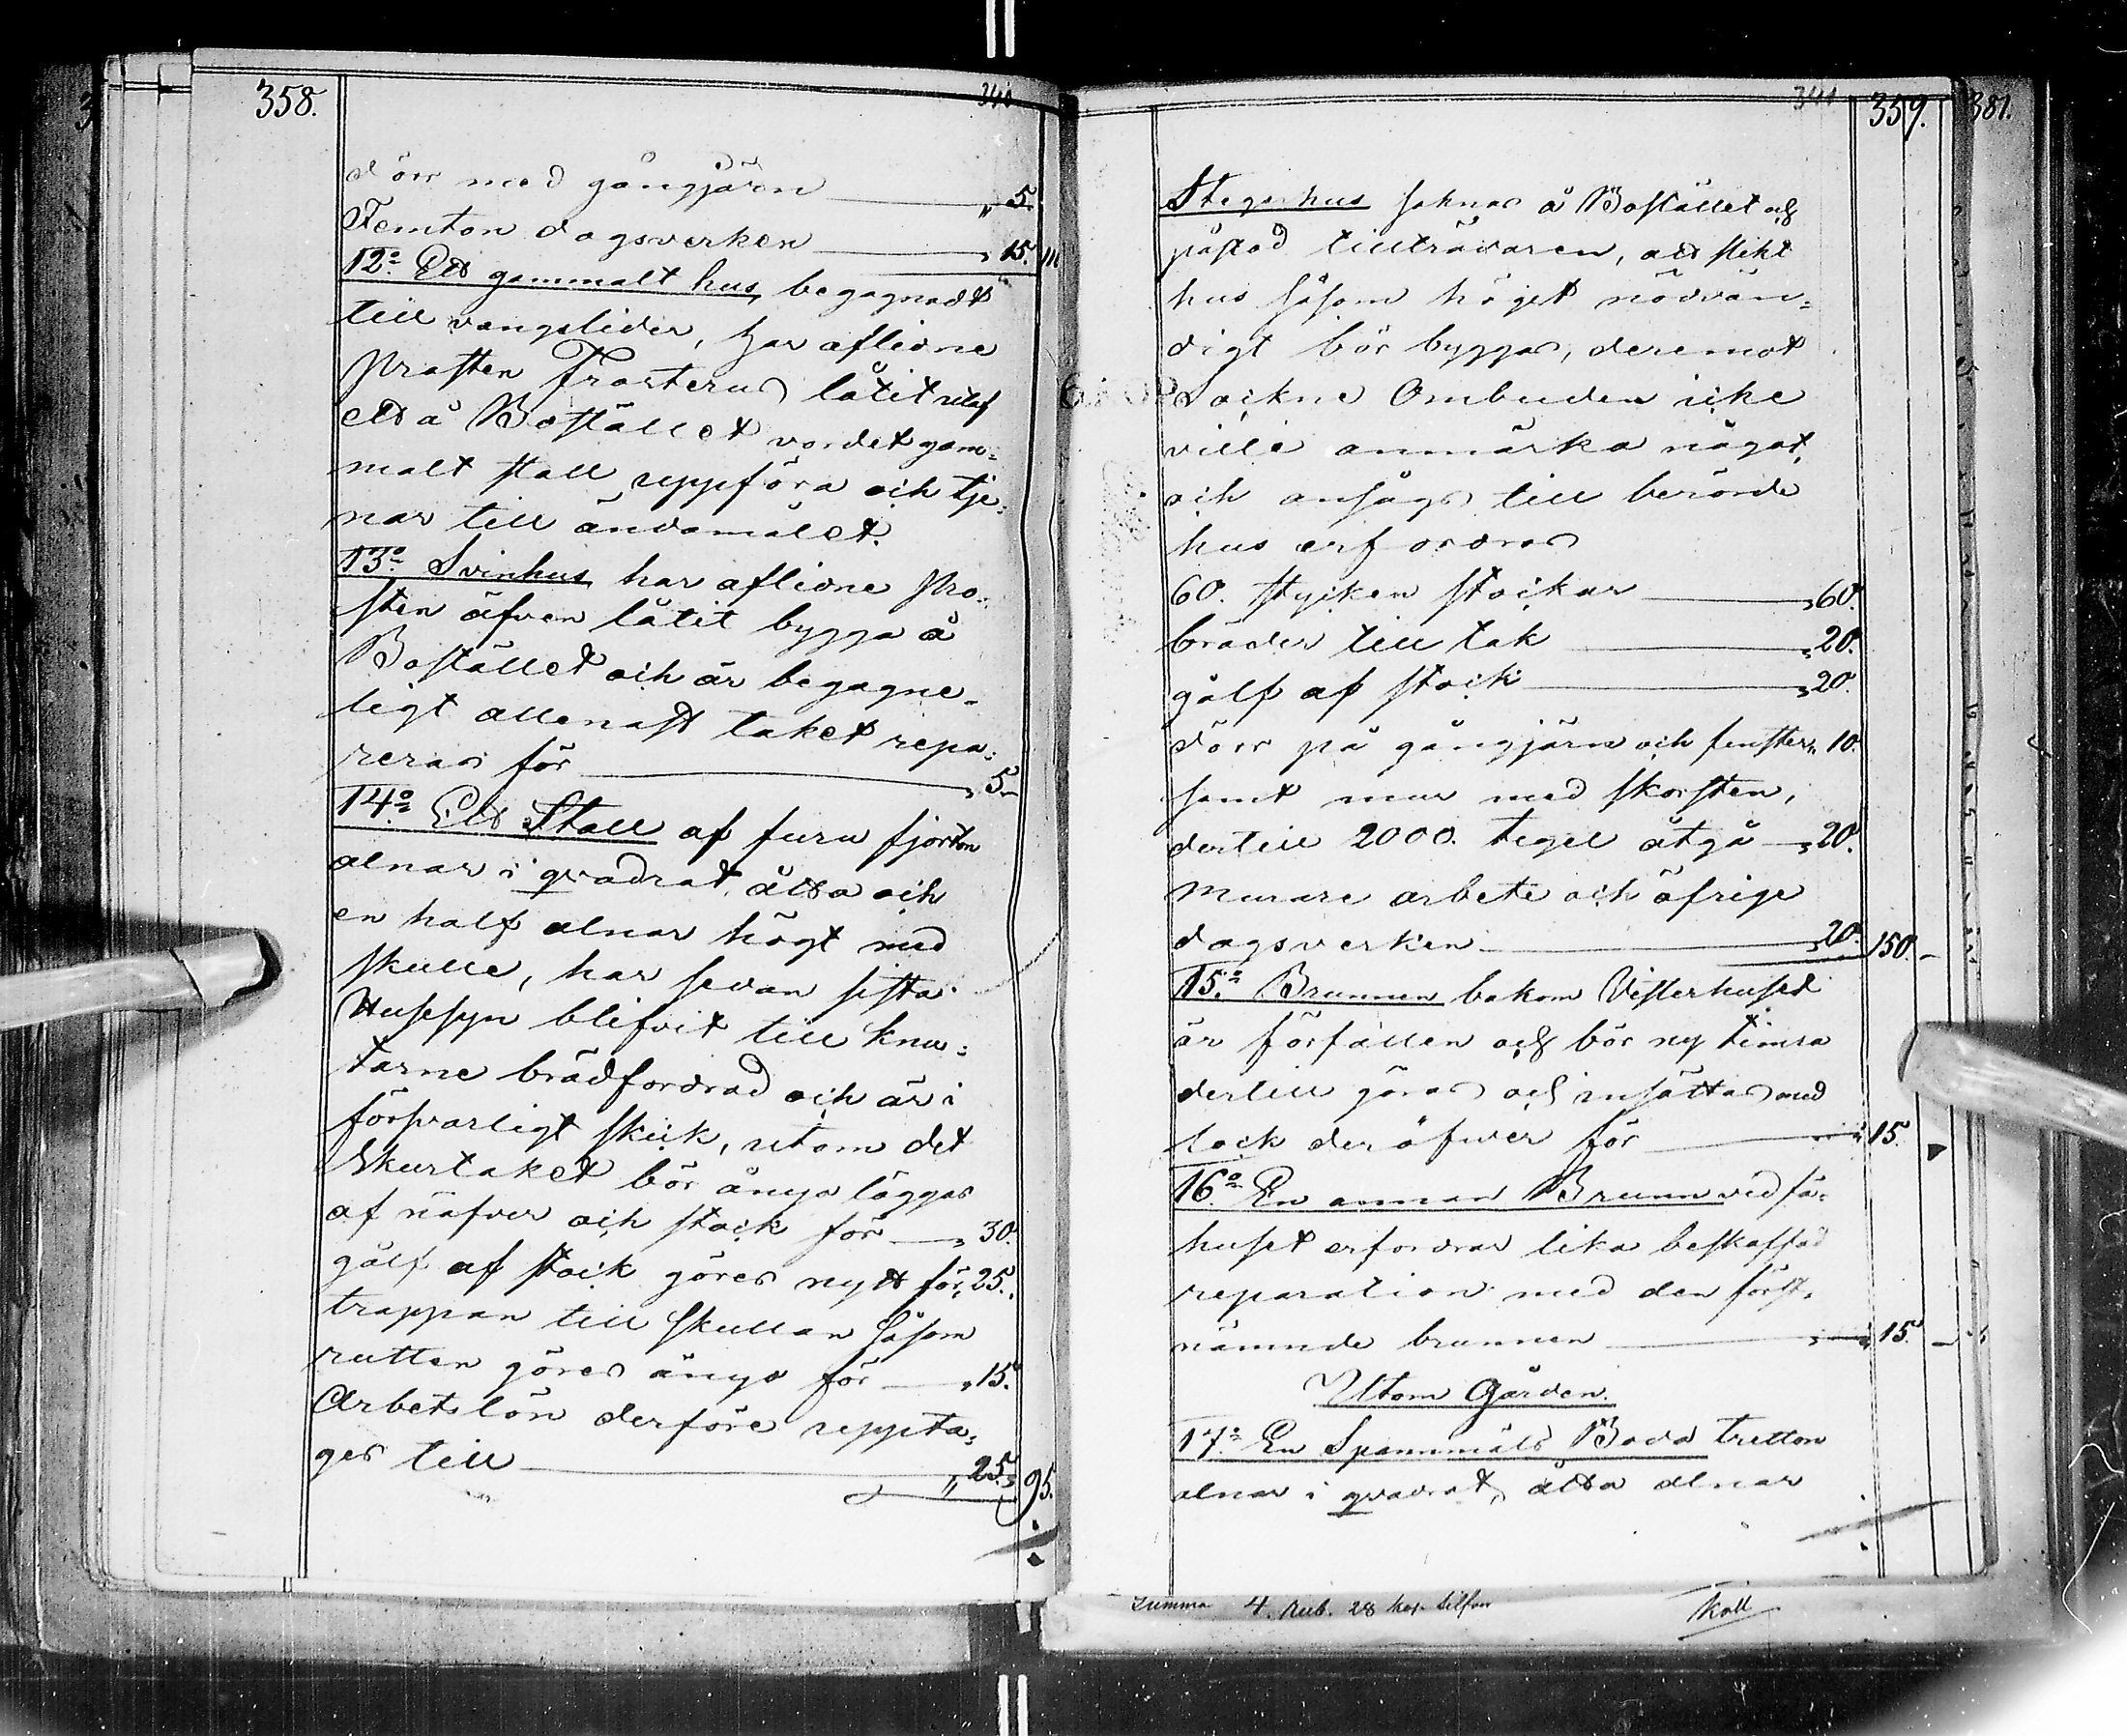 358.
340
dörr med gångjärn „ 5.
Femton dagsverken „ 15.
12:o Ett gammalt hus, begagnadt
till vangslider, har aflidne
Prosten Frosterus låtit utaf
ett å Bostället vordet gam=
malt stall uppföra och tje=
nar till ändamålet.
13:o Svinhus har aflidne Pro=
sten äfven låtit bygga å
Bostället och är begagne=
ligt allenast taket repa=
reras för „ 5.
14:o Ett Stall af furu fjorton
alnar i qvadrat, åtta och
en half alnar högt med
skulle, har sedan sista
Hussyn blifvit till knu=
tarne brädfordrad och är i
försvarligt skick, utom det
Skurtaket bör ånyo läggas
af näfver och stock för „ 30.
gålf af stock göres nytt för „ 25.
trappan till skullan såsom
rutten göres ånyo för „ 15.
Arbetslön derföre uppta=
ges till „ 25. 95.
341
359.
381.
Stegerhus saknas å Bostället och
påstod tillträdaren, att slikt
hus såsom högst nödvän=
digt bör byggas, deremot
Sockne Ombuden icke
ville anmärka något,
och ansågs till berörde
hus erfordras
60. stycken stockar „ 60.
bräder till tak „ 20.
gålf af stock „ 20.
dörr på gångjärn och fenster „ 10.
samt mur med skorsten,
dertill 2000. tegel åtgå „ 20.
Murare arbete och öfrige
dagsverken „ 20. 150. -
15:o Brunnen bakom Vesterhuset
är förfallen och bör ny timra
dertill göras och insättas med
lock deröfver för „ 15.
16:o En annan Brunn vid fä=
huset erfordrar lika beskaffad
reparation med den först=
nämnde brunnen „ 15. -
Utom Gården.
17:o En Spannmåls Boda tretton
alnar i qvadrat, åtta alnar
Summa 4. Rub. 28 kop. Silfver